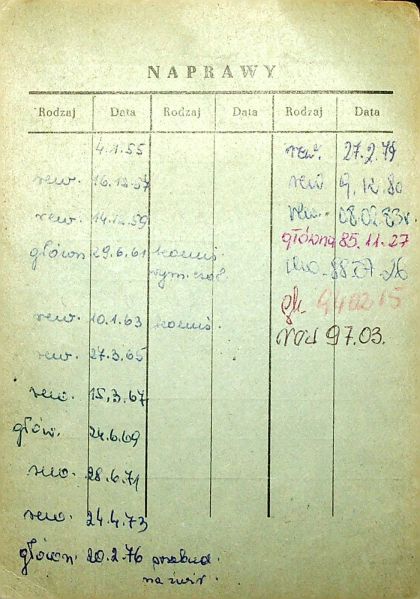 NAPRAWY
Rodzaj Data Rodzaj Data Rodzaj Data
4.1.55
rew. 16.12.57
rew. 14.12.59
główn 29.6.61 komis.
wym. czół.
rew. 10.1.63 komis.
rew. 27.3.65
rew. 15.3.67
głów. 24.6.69
rew. 28.6.71
rew. 24.4.73
główn. 20.2.76 przebud.
na żwir.
rew. 27.2.79
rew 9.12.80
rew. 08.02.83r.
główna 85.11.27
88.07.26
gł. 940215
rew 97.03.